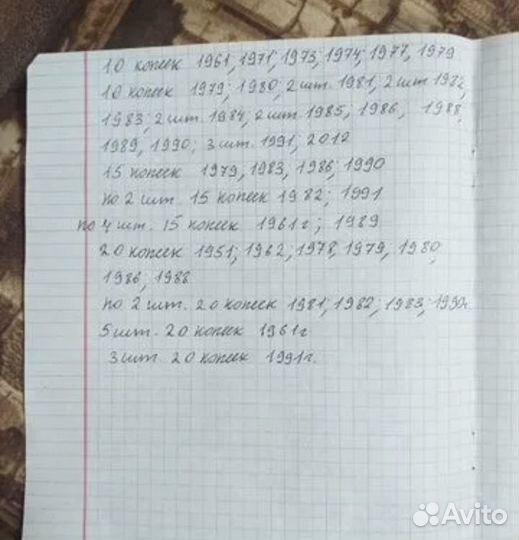 10 копеек 1961; 1971; 1973; 1974; 1977, 1979
10 копеек 1979; 1980, 2 шт. 1981, 2 шт 1982,
1983; 2 шт. 1984; 2 шт 1985, 1986, 1988,
1989, 1990; 3 шт. 1991; 2012
15 копеек 1979, 1983, 1986; 1990
по 2 шт. 15 копеек 1982; 1991
по 4 шт. 15 копеек 1961г; 1989
20 копеек 1951; 1962; 1978, 1979, 1980,
1986; 1988
по 2 шт. 20 копеек 1981; 1982; 1983; 1990г.
5 шт. 20 копеек 1961г
3 шт. 20 копеек 1991г.
Avito